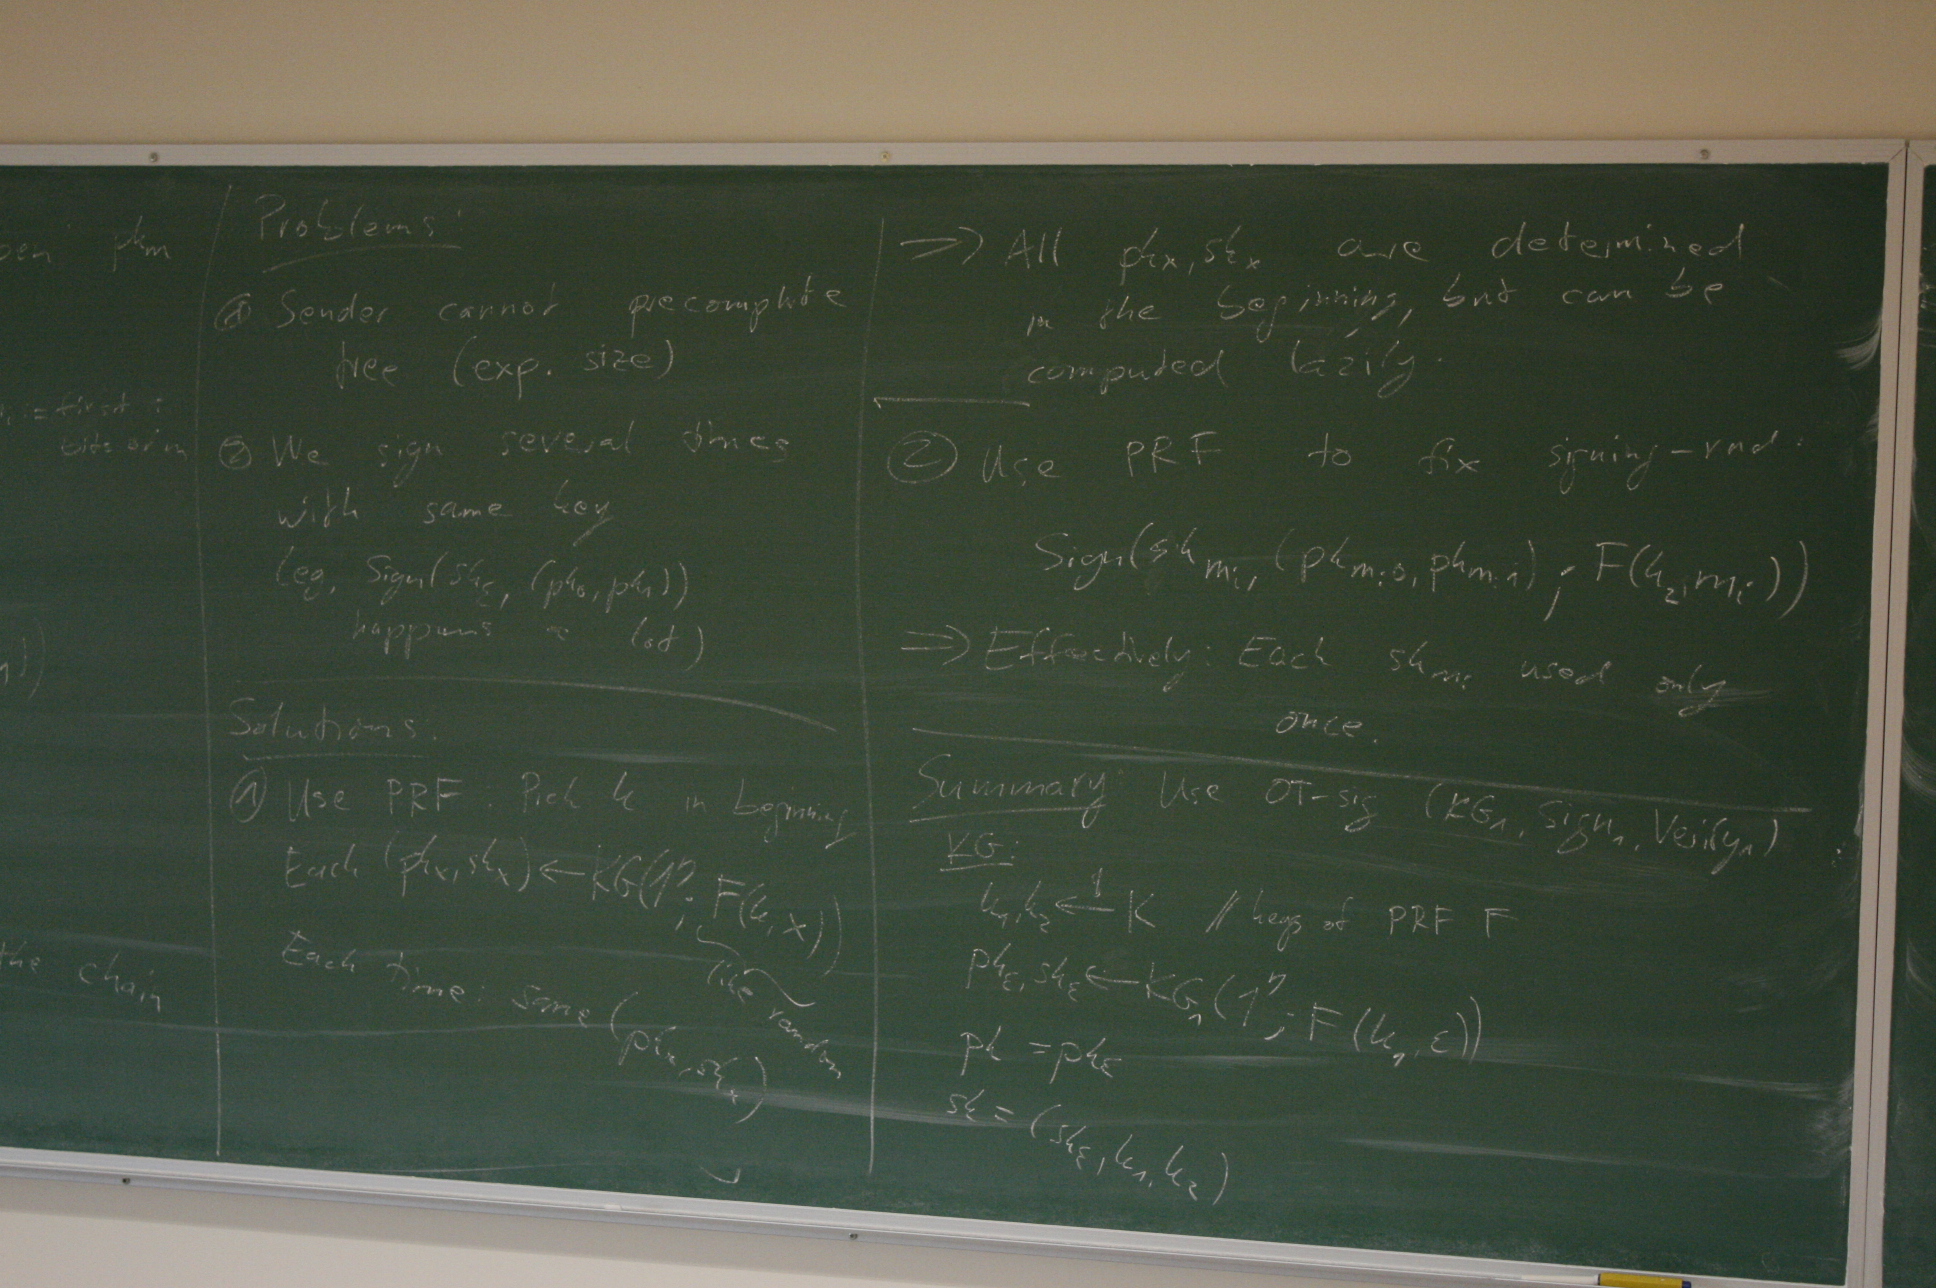 pk_m
:= first i
bits of m
the chain
Problems:
① Sender cannot precompute
tree (exp. size)
② We sign several times
with same key
(eg, Sign(sk_ε, (pk_0, pk_1))
happens a lot)
Solutions:
① Use PRF: Pick k in beginning
Each (pk_x, sk_x) ← KG(1^η; F(k, x))
like random
Each time: same (pk_x, sk_x)
⇒ All pk_x, sk_x are determined
in the beginning, but can be
computed lazily.
② Use PRF to fix signing-rnd:
Sign(sk_{m_i}, (pk_{m_i0}, pk_{m_i1}); F(k_2, m_i))
⇒ Effectively: Each sk_{m_i} used only
once.
Summary: Use OT-sig (KG_1, Sign_1, Verify_1)
KG:
k_1, k_2 ←$ K // keys of PRF F
pk_ε, sk_ε ← KG_1(1^η; F(k_1, ε))
pk = pk_ε
sk = (sk_ε, k_1, k_2)